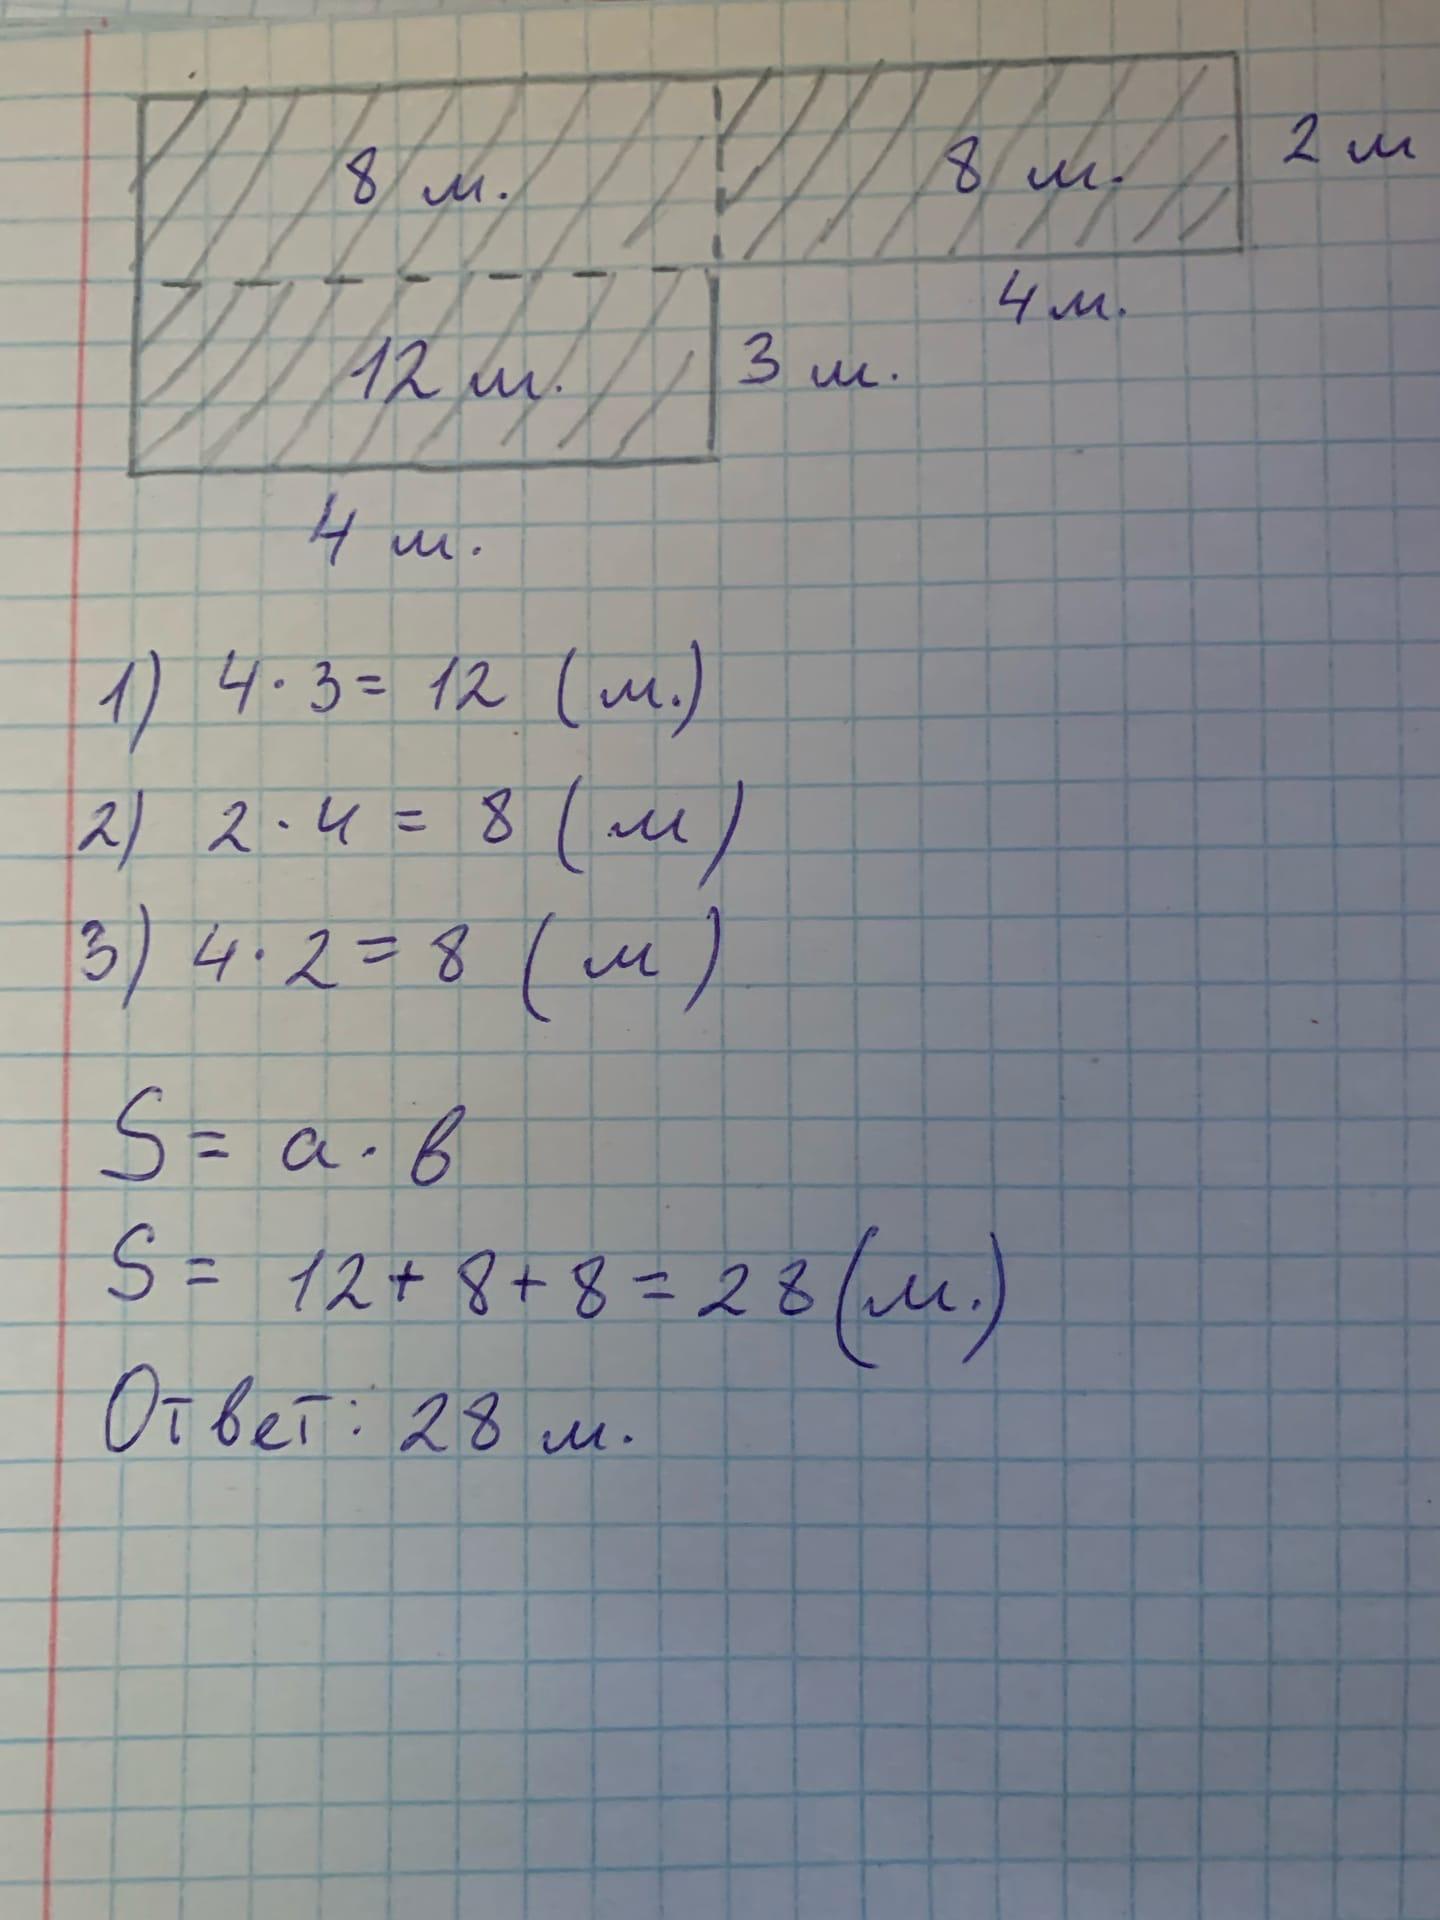 8 м. 8 м. 2 м
4 м.
12 м. 3 м.
4 м.
1) 4 · 3 = 12 (м.)
2) 2 · 4 = 8 (м)
3) 4 · 2 = 8 (м)
S = а · в
S = 12 + 8 + 8 = 28 (м.)
Ответ: 28 м.